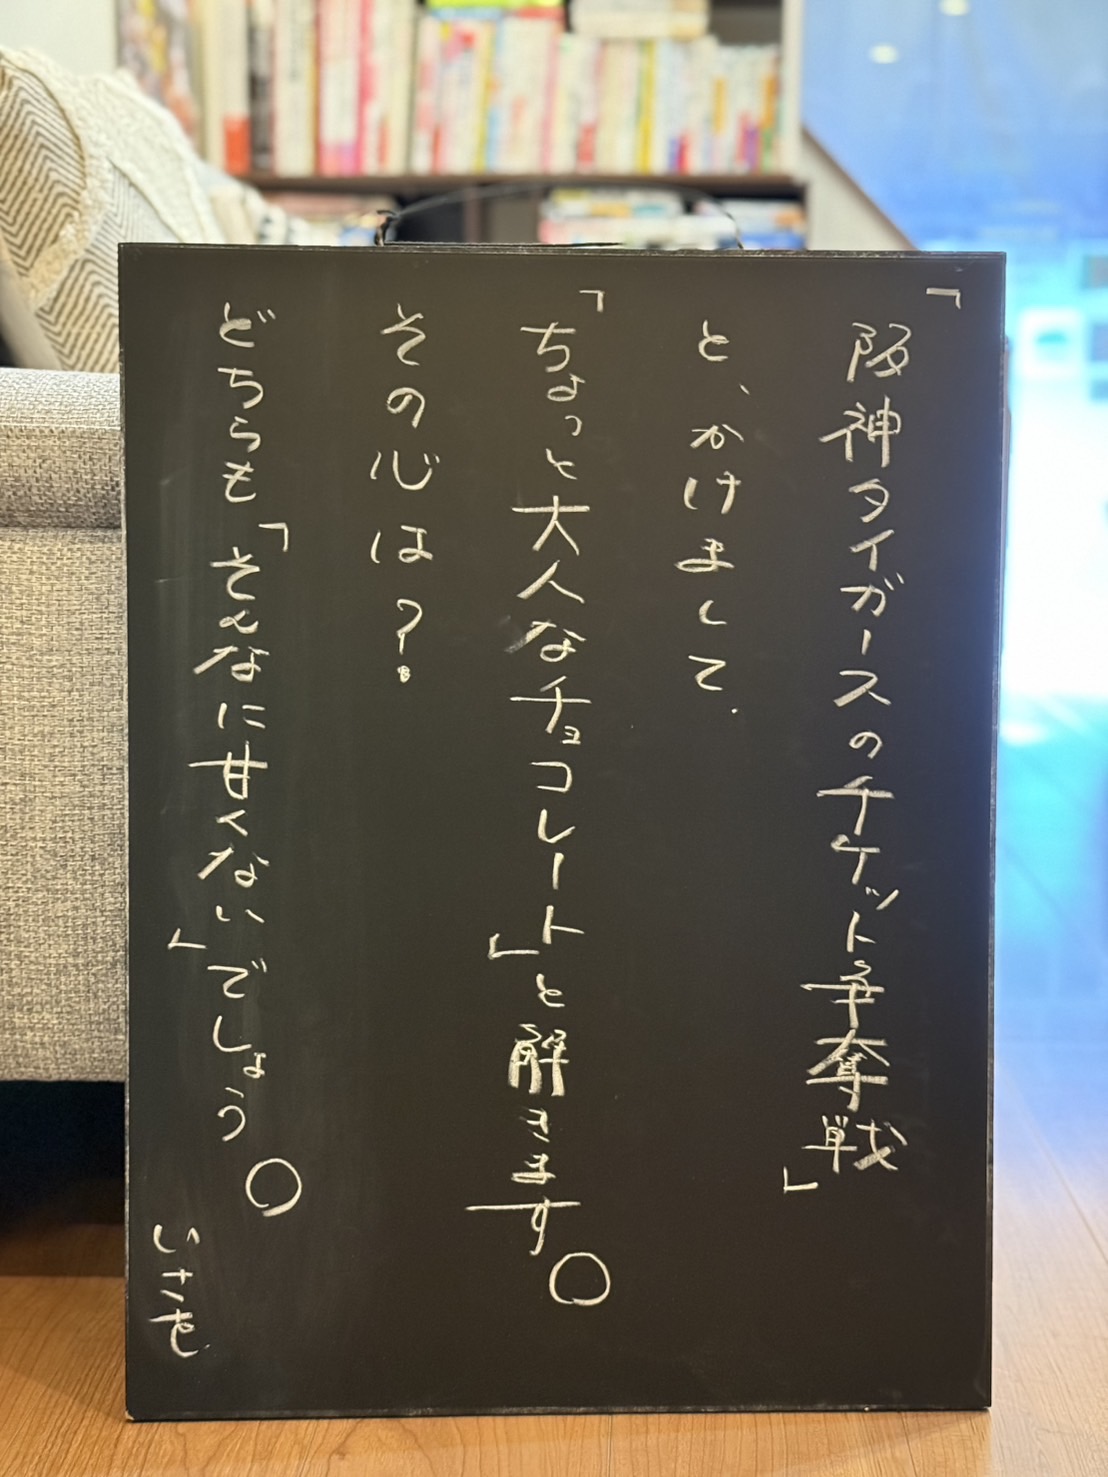 「阪神タイガースのチケット争奪戦」
と、かけまして.
「ちょっと大人なチョコレート」と解きます。
その心は?
どちらも「そんなに甘くない」でしょう。
いさを